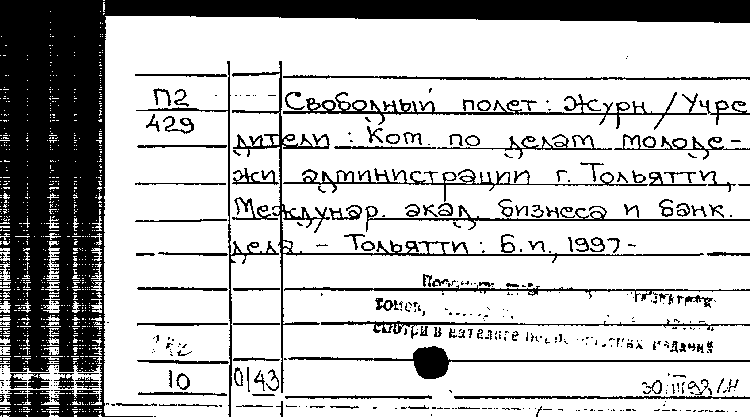 П2
429
Свободный полет: Журн / Учре
дители: Ком. по делам молоде-
жи администрации г. Тольятти,
Междунар. акад. бизнеса и банк.
дела. - Тольятти: Б.и., 1997-
томов,
смотри в каталоге издания
10 0/43 30/III98/Н